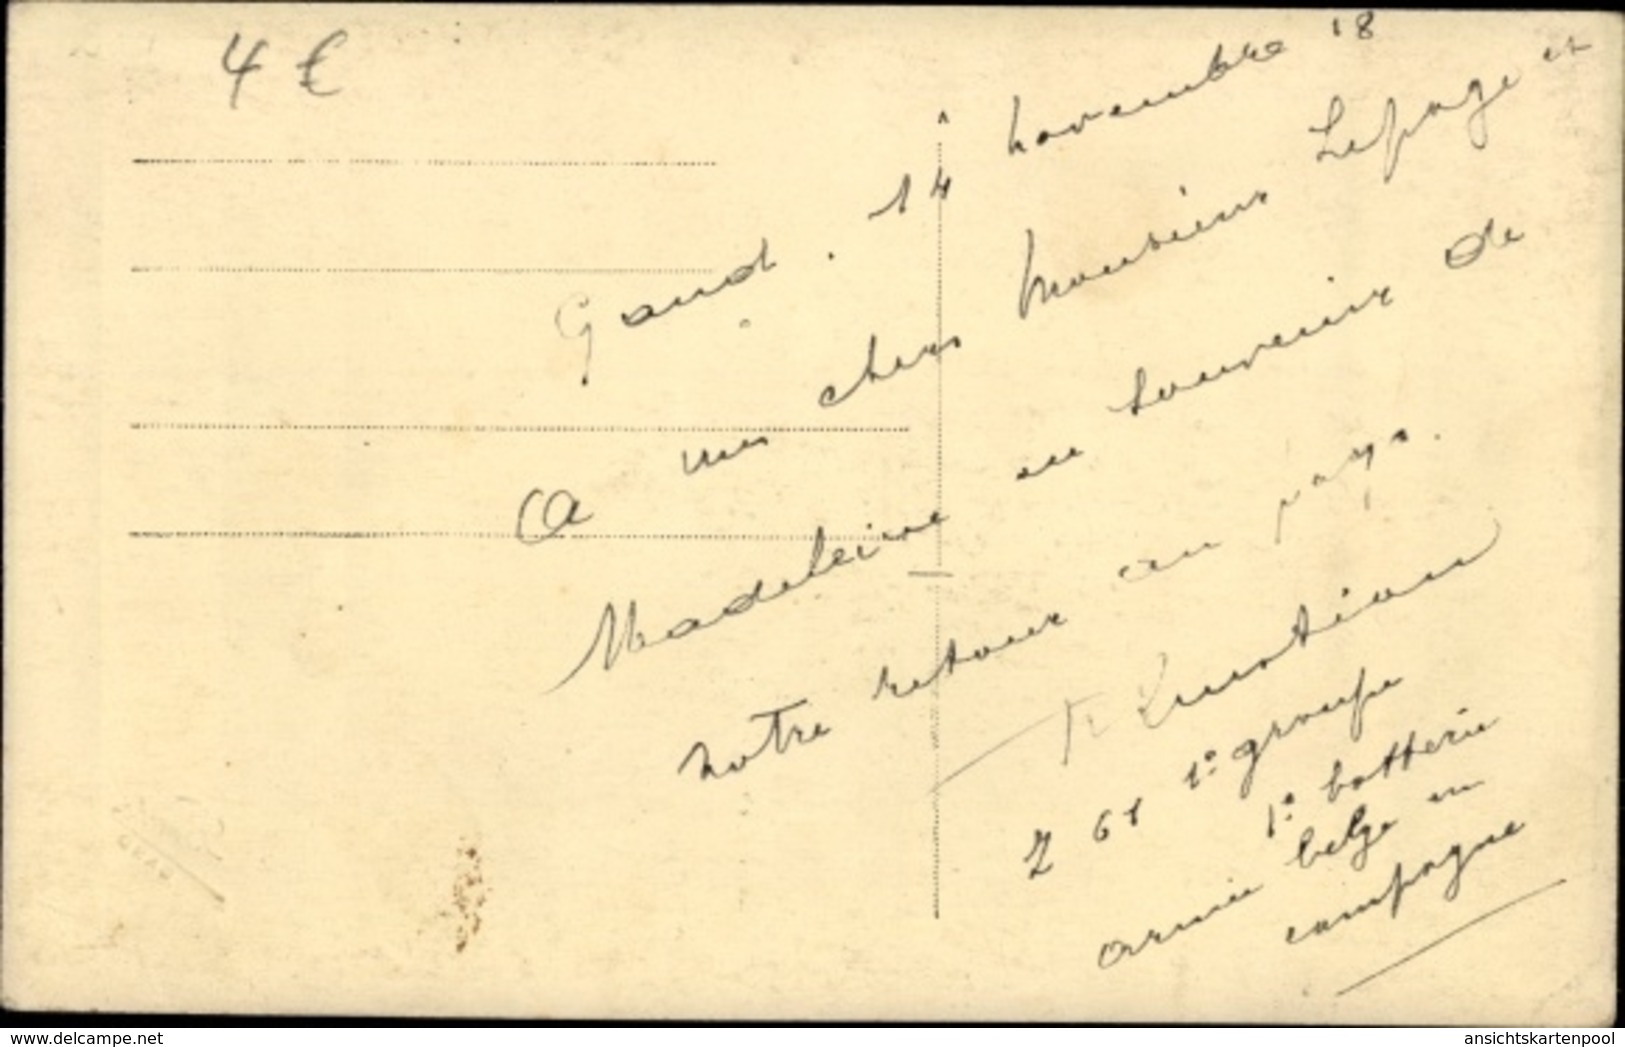 4 €
Gand. 14 novembre 18
A mes chers Monsieur Lepage et
Madeleine en souvenir de
notre retour au pays.
Z 61 1° groupe
1° batterie
armée belge en
campagne
www.delcampe.net
ansichtskartenpool